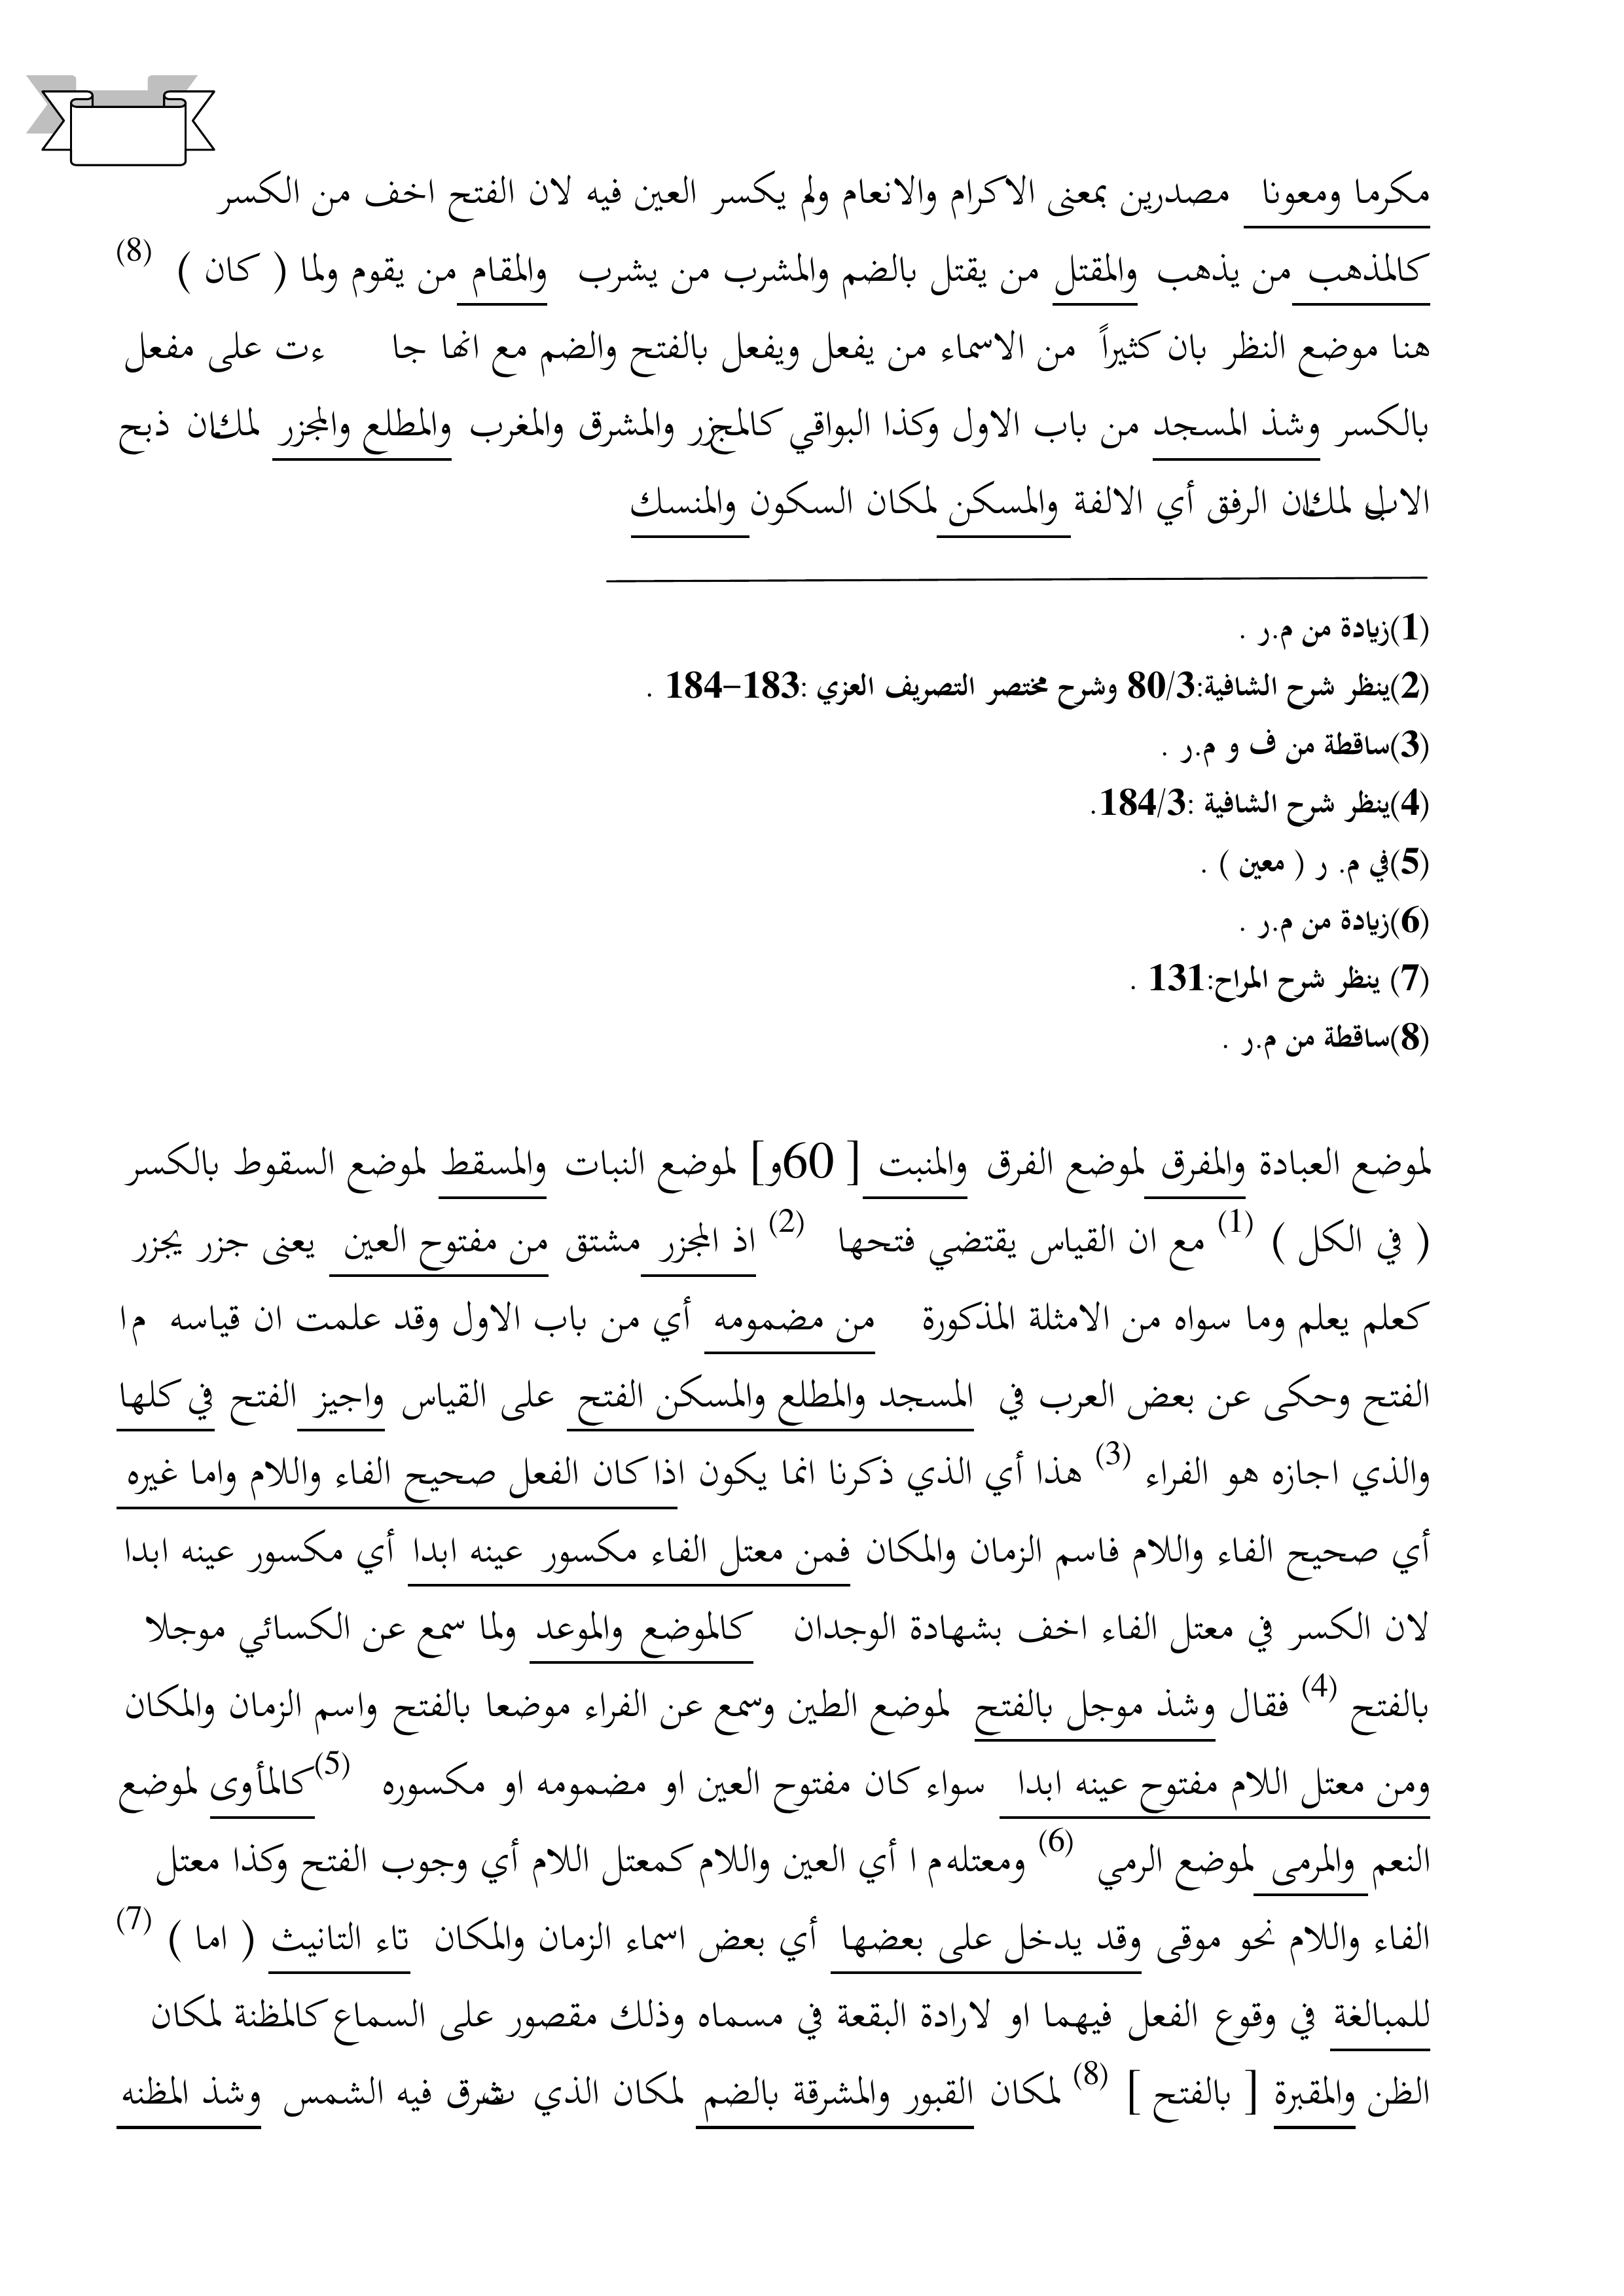 مكرما ومعونا مصدرين بمعنى الاكرام والانعام ولم يكسر العين فيه لان الفتح اخف من الكسر
كالمذهب من يذهب والمقتل من يقتل بالضم والمشرب من يشرب والمقام من يقوم ولما ( كان ) (8)
هنا موضع النظر بان كثيراً من الاسماء من يفعل ويفعل بالفتح والضم مع انها جا ءت على مفعل
بالكسر وشذ المسجد من باب الاول وكذا البواقي كالمجزر والمشرق والمغرب والمطلع والمجزر لمكان ذبح
الابل لمكان الرفق أي الالفة والمسكن لمكان السكون والمنسك
(1)زيادة من م.ر .
(2)ينظر شرح الشافية:80/3 وشرح مختصر التصريف العزي :183-184 .
(3)ساقطة من ف و م.ر .
(4)ينظر شرح الشافية :184/3.
(5)في م. ر ( معين ) .
(6)زيادة من م.ر .
(7) ينظر شرح المراح:131 .
(8)ساقطة من م.ر .
لموضع العبادة والمفرق لموضع الفرق والمنبت [ 60و] لموضع النبات والمسقط لموضع السقوط بالكسر
( في الكل ) (1) مع ان القياس يقتضي فتحها (2) اذ المجزر مشتق من مفتوح العين يعنى جزر يجزر
كعلم يعلم وما سواه من الامثلة المذكورة من مضمومه أي من باب الاول وقد علمت ان قياسه م ا
الفتح وحكى عن بعض العرب في المسجد والمطلع والمسكن الفتح على القياس واجيز الفتح في كلها
والذي اجازه هو الفراء (3) هذا أي الذي ذكرنا انما يكون اذا كان الفعل صحيح الفاء واللام واما غيره
أي صحيح الفاء واللام فاسم الزمان والمكان فمن معتل الفاء مكسور عينه ابدا أي مكسور عينه ابدا
لان الكسر في معتل الفاء اخف بشهادة الوجدان كالموضع والموعد ولما سمع عن الكسائي موجلا
بالفتح (4) فقال وشذ موجل بالفتح لموضع الطين وسمع عن الفراء موضعا بالفتح واسم الزمان والمكان
ومن معتل اللام مفتوح عينه ابدا سواء كان مفتوح العين او مضمومه او مكسوره (5) كالمأوى لموضع
النعم والمرمى لموضع الرمي (6) ومعتله م ا أي العين واللام كمعتل اللام أي وجوب الفتح وكذا معتل
الفاء واللام نحو موقى وقد يدخل على بعضها أي بعض اسماء الزمان والمكان تاء التانيث ( اما ) (7)
للمبالغة في وقوع الفعل فيهما او لارادة البقعة في مسماه وذلك مقصور على السماع كالمظنة لمكان
الظن والمقبرة [ بالفتح ] (8) لمكان القبور والمشرقة بالضم لمكان الذي تشرق فيه الشمس وشذ المظنه